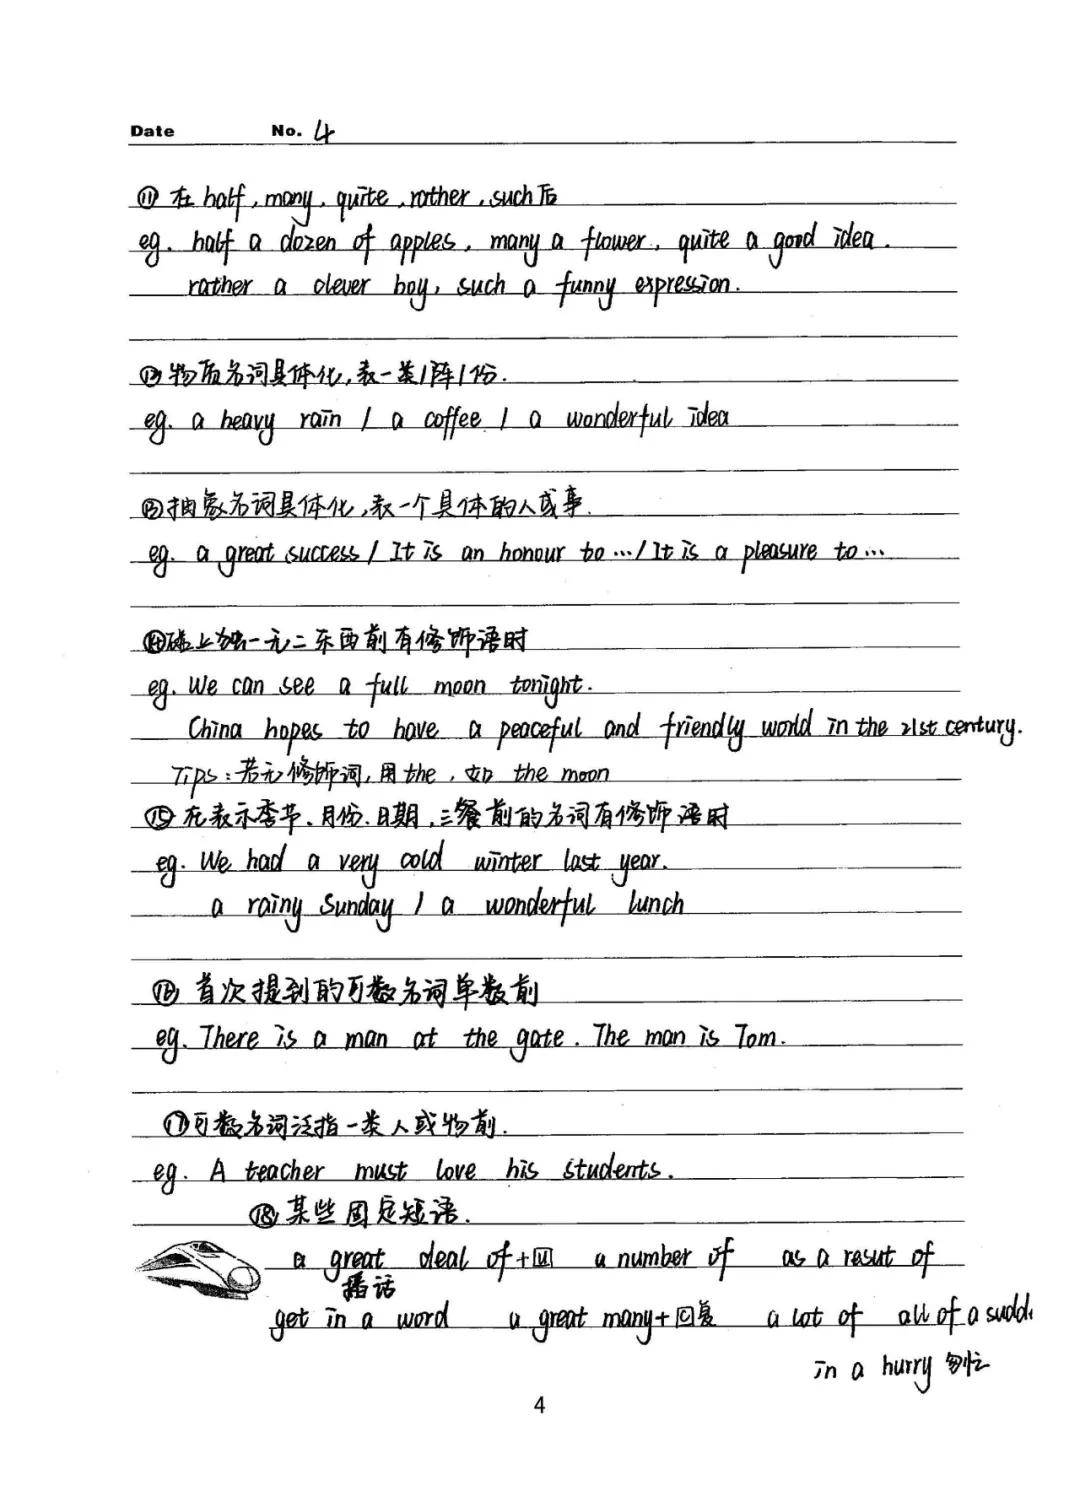 Date No. 4
⑪ 在 half, many, quite, rather, such 后
eg. half a dozen of apples, many a flower, quite a good idea.
rather a clever boy, such a funny expression.
⑫ 物质名词具体化,表一类/阵/份.
eg. a heavy rain / a coffee / a wonderful idea
⑬ 抽象名词具体化,表一个具体的人或事.
eg. a great success / It is an honour to … / It is a pleasure to …
⑭ 碰上独一无二东西前有修饰语时
eg. We can see a full moon tonight.
China hopes to have a peaceful and friendly world in the 21st century.
Tips:若无修饰词,用the,如 the moon
⑮ 在表示季节、月份、日期,三餐前的名词有修饰语时
eg. We had a very cold winter last year.
a rainy Sunday / a wonderful lunch
⑯ 首次提到的可数名词单数前
eg. There is a man at the gate. The man is Tom.
⑰ 可数名词泛指一类人或物前.
eg. A teacher must love his students.
⑱ 某些固定短语.
a great deal of + U a number of as a result of
插话
get in a word a great many + 复 a lot of all of a sudd
in a hurry 匆忙
4